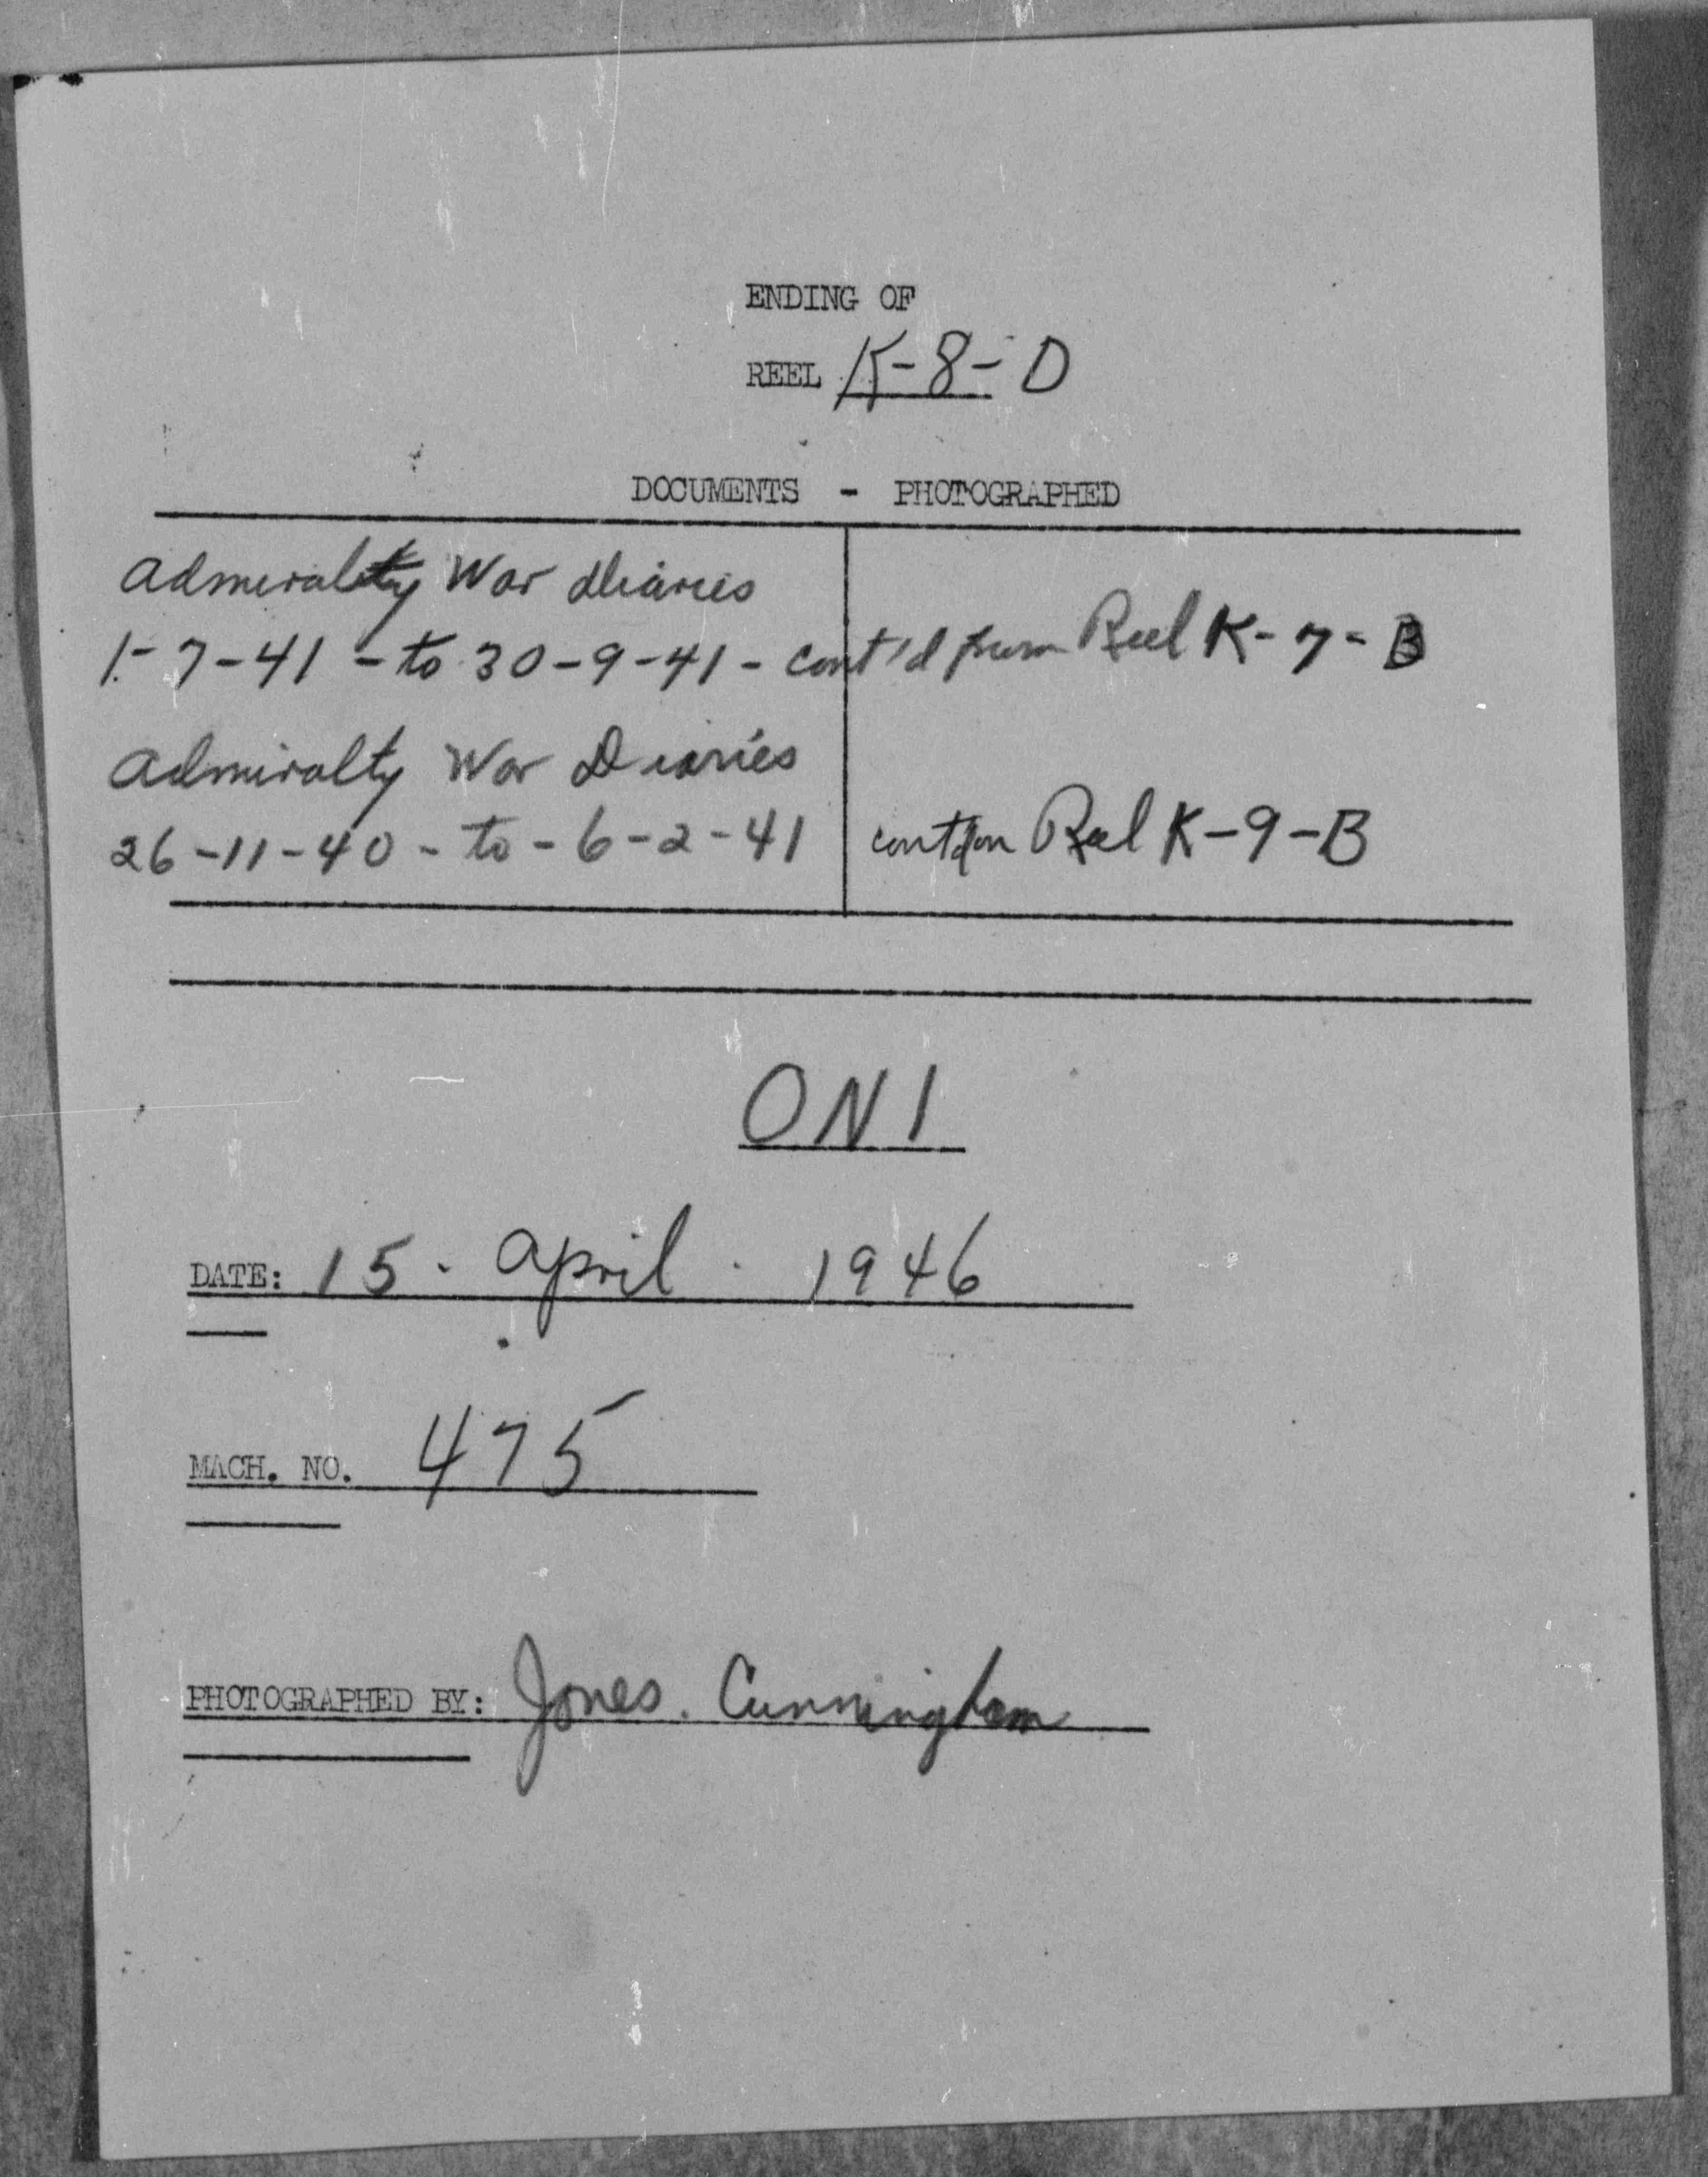 ENDING OF
REEL K-8-D
DOCUMENTS - PHOTOGRAPHED
Admiralty War Diaries
1-7-41 - to 30-9-41 - cont'd from Reel K-7-B
Admiralty War Diaries
26-11-40 - to - 6-2-41 cont'd on Reel K-9-B
ONI
DATE: 15 . April . 1946
MACH. NO. 475
PHOTOGRAPHED BY: Jones. Cunningham